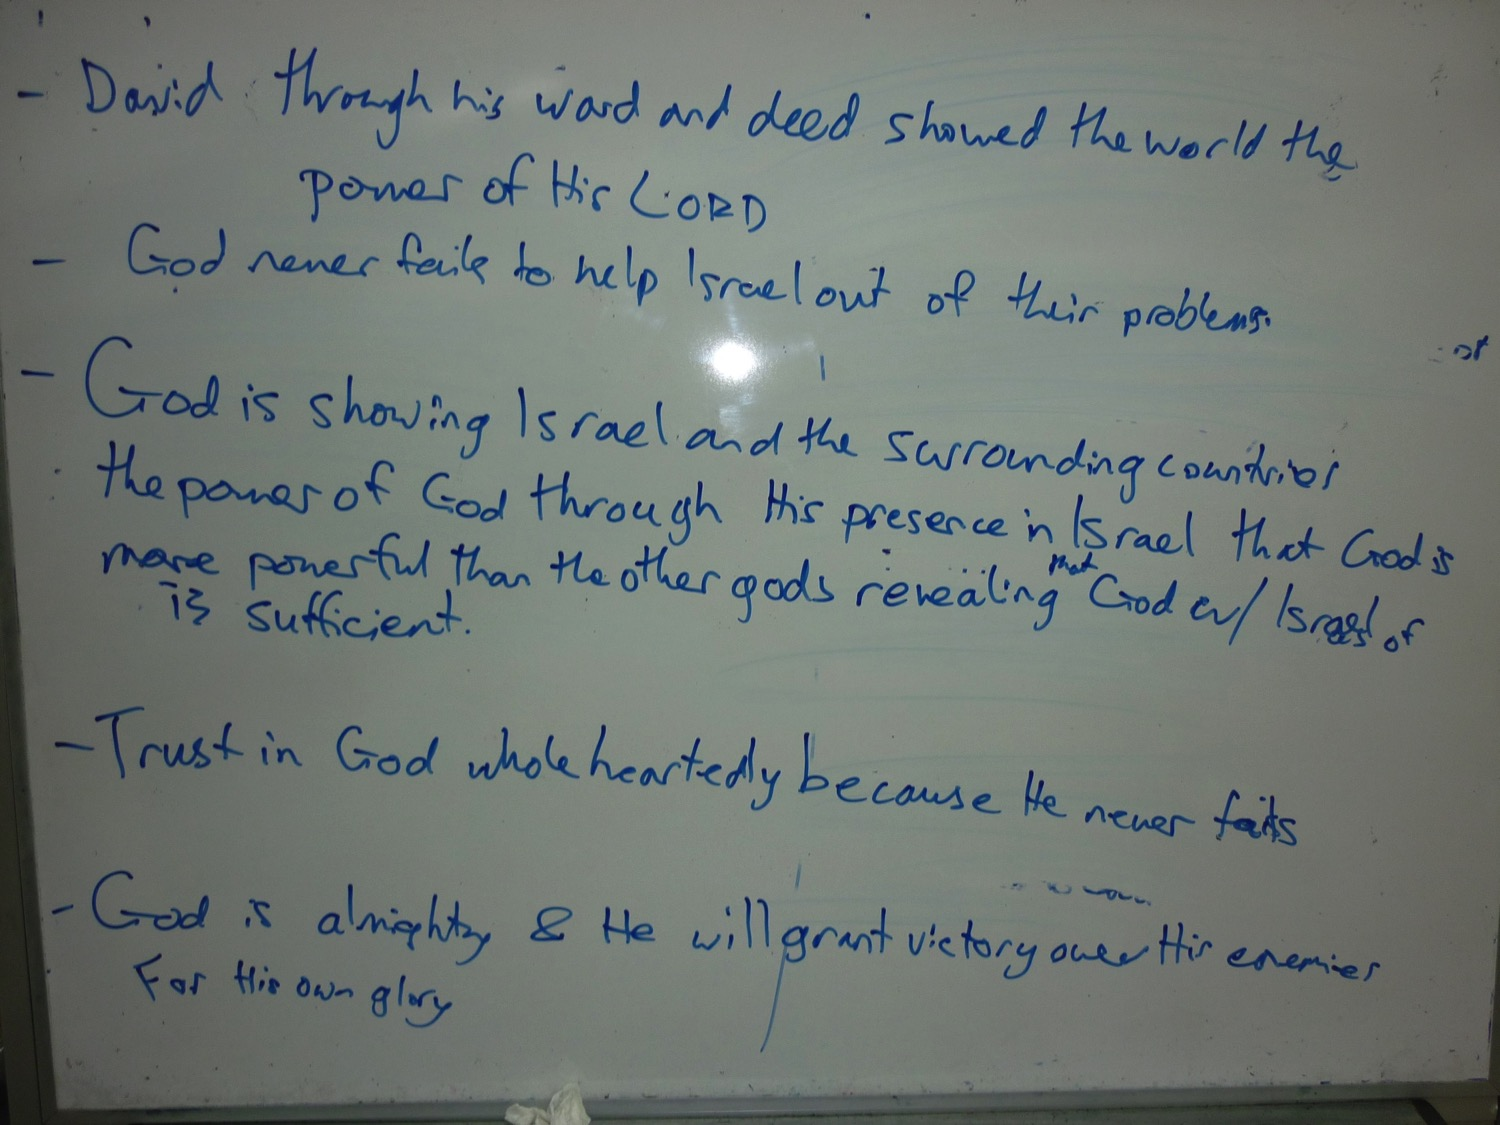 - David through his word and deed showed the world the
power of His LORD
- God never fails to help Israel out of their problems.
- God is showing Israel and the surrounding countries
the power of God through His presence in Israel that God is
more powerful than the other gods revealing that God w/ Israel of
is sufficient.
- Trust in God whole heartedly because He never fails
- God is almighty & He will grant victory over His enemies
For His own glory